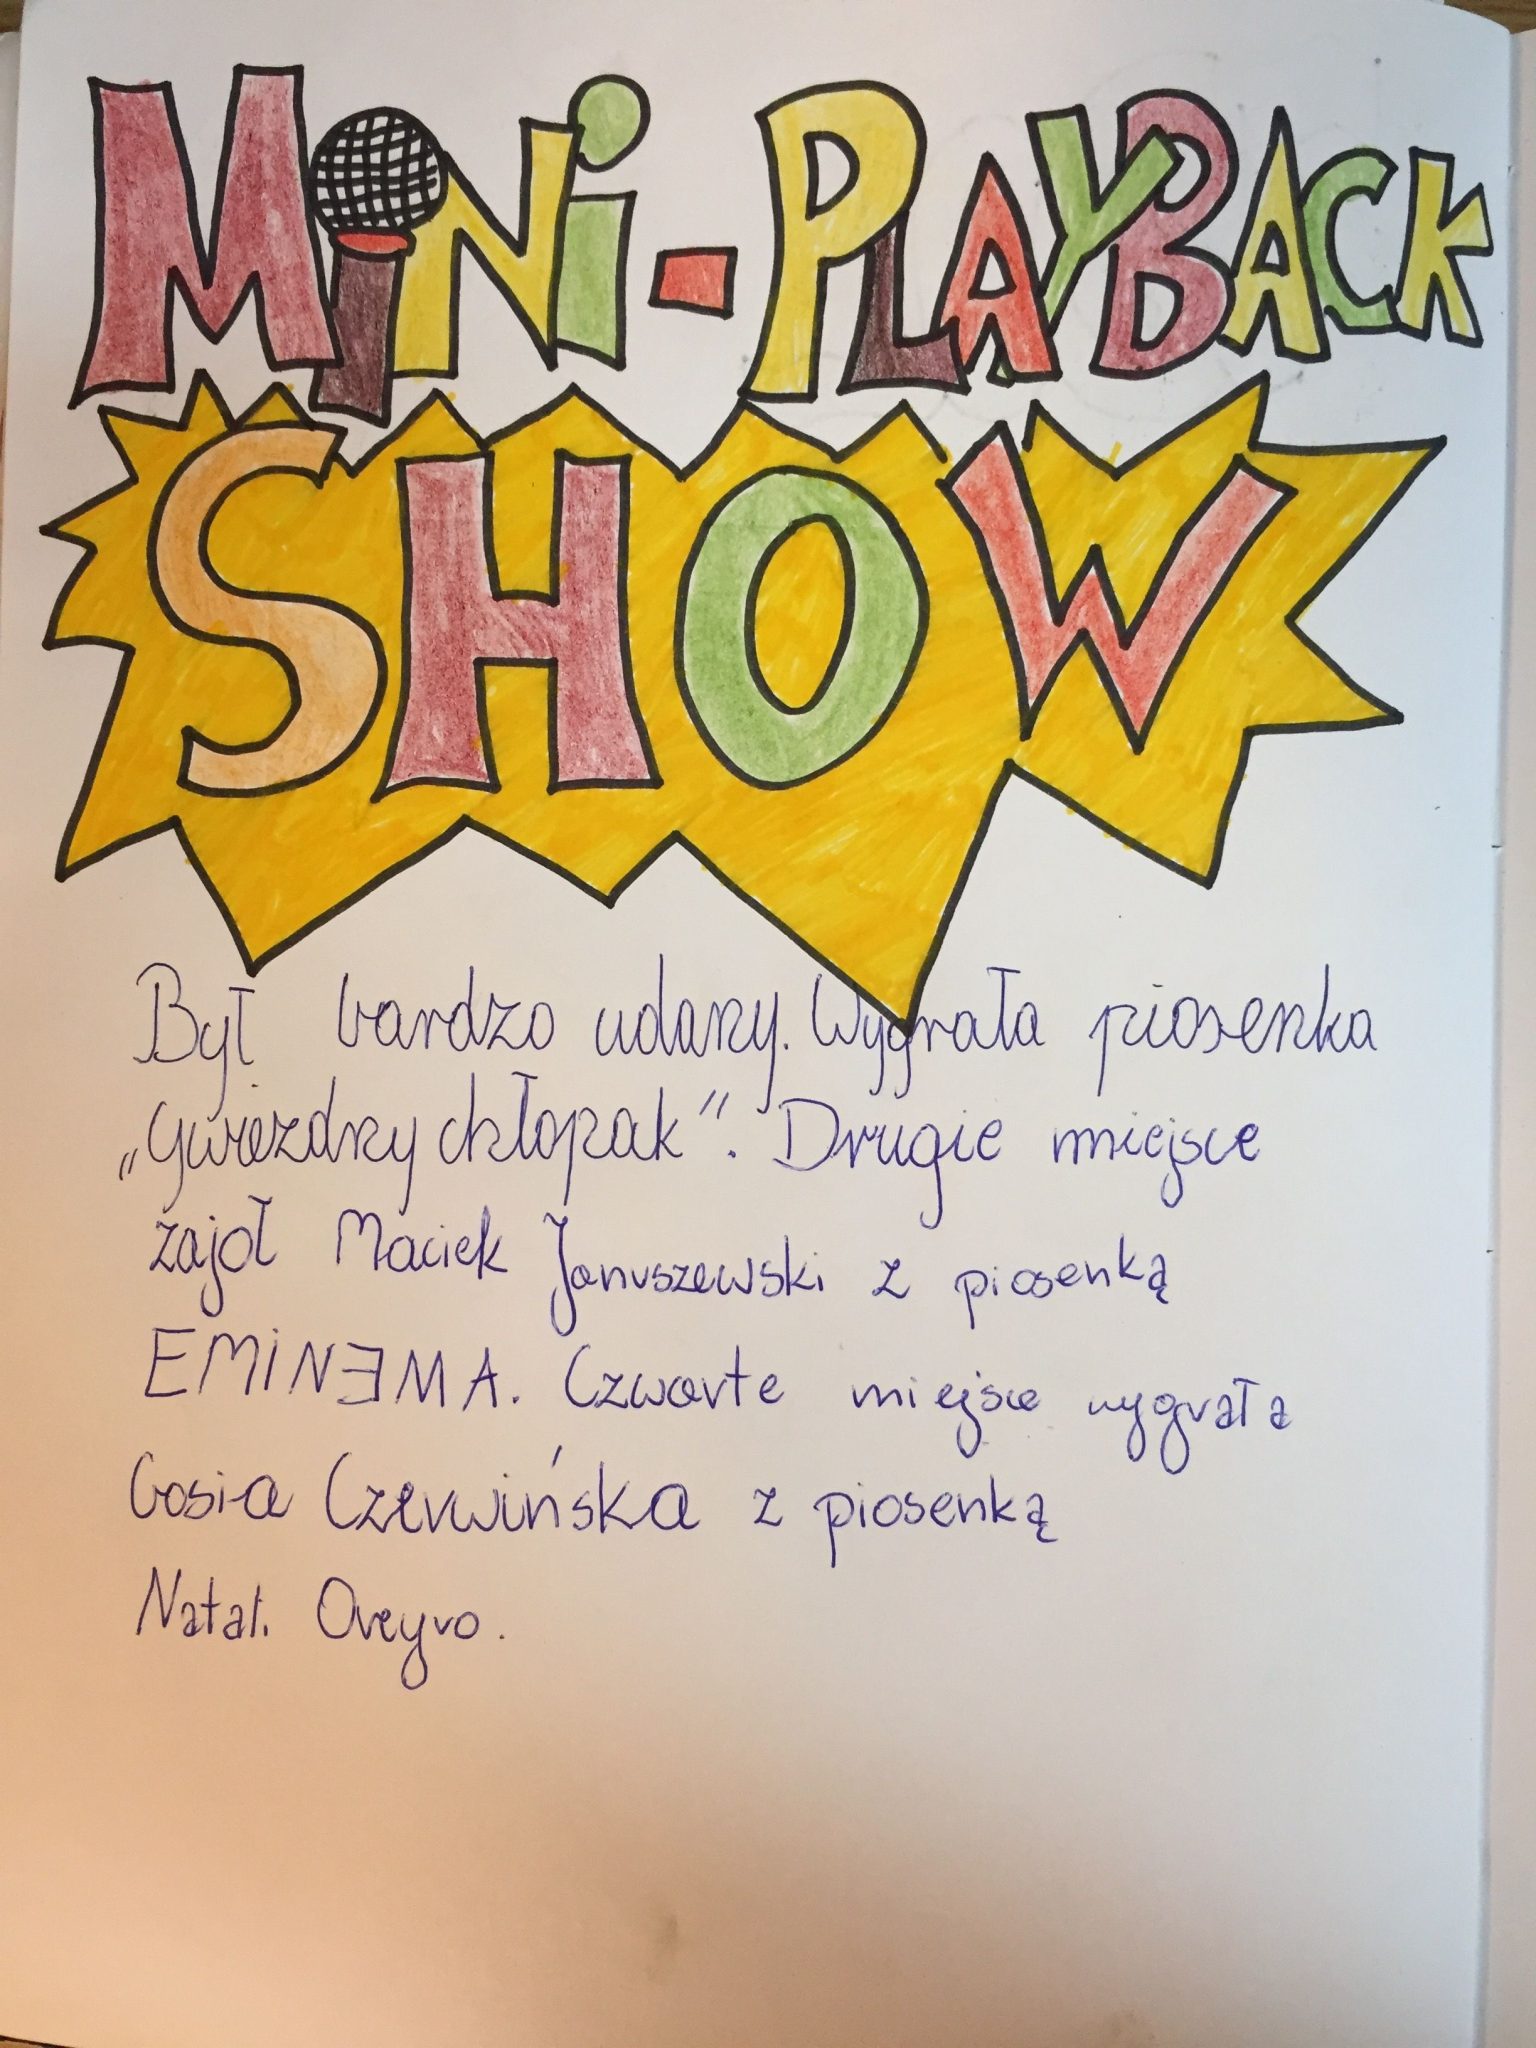 MiNi-PLAYBACK
SHOW
Był bardzo udany. Wygrała piosenka
„Gwiezdny chłopak”. Drugie miejsce
zajoł Maciek Januszewski z piosenką
EMINEMA. Czwarte miejsce wygrała
Gosia Czerwińska z piosenką
Natal. Oreyro.